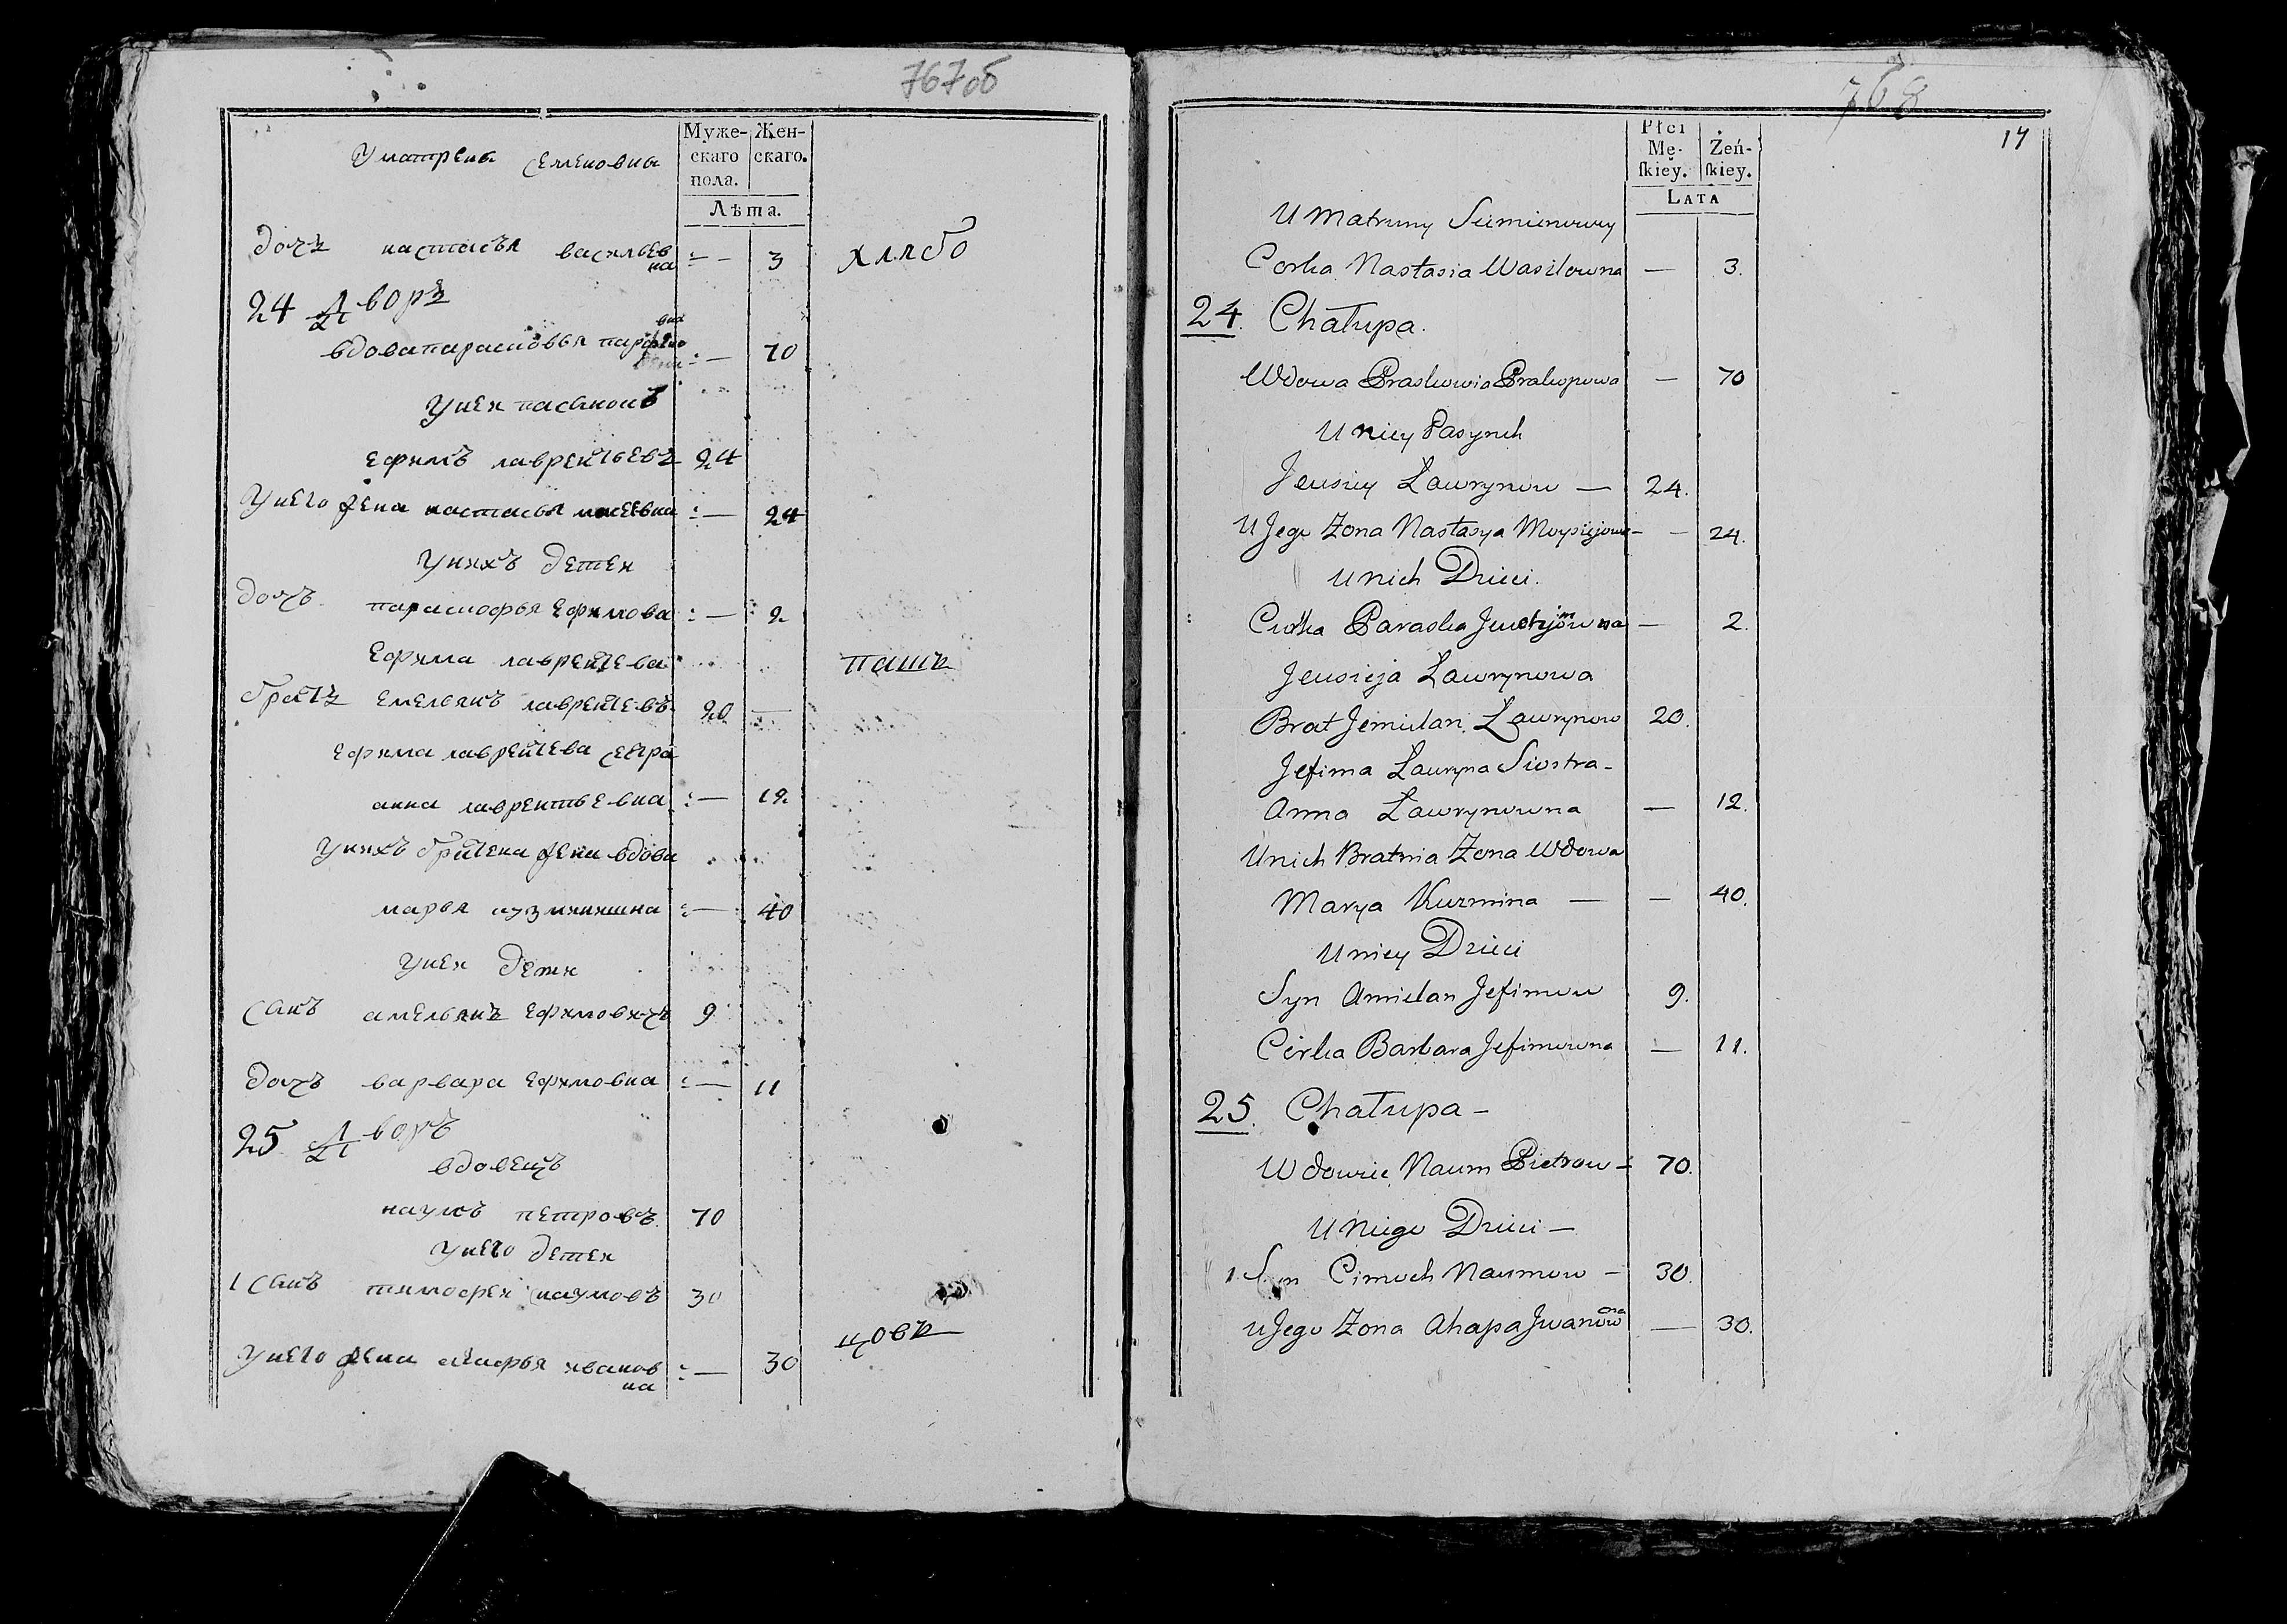 767об
Муже- Жен-
скаго скаго.
пола.
Лѣта.
Уматрены семеновны
дочъ настасья васильев
на 3 хлѣбо
24 Дворъ
вдова парасковья 70
Унеи пасынокъ
ефимъ лаврентьевъ 24
Унего жена настасья мосеевна 24
Унихъ детеи
дочъ парасковья ефимова 2
Ефима лаврентева пашк
братъ емельянъ лаврентевъ 20
ефима лаврентева сестра
анна лаврентьевна 12
Унихъ братена жена вдова
марья кузминишна 40
Унеи дети
сынъ амельянъ ефимовичъ 9
дочъ варвара ефимовна 11
25 Дворъ
вдовецъ
наумъ петровъ 70
Унего детеи
1 сынъ тимофеи наумовъ 30
цовъ
Унего жена агафья иванов
на 30
768
17
Płci
Mę- Żeń-
ſkiey. ſkiey.
LATA
U Matruny Siemionowy
Corka Nastasia Wasilowna — 3.
24. Chałupa.
Wdowa Praskowia Prakopowa — 70
U Niey Pasynek
Jeusiey Ławrynow — 24.
U Jego Zona Nastasya Moysiejowa — 24.
U nich Dzieci.
Corka Paraska — 2.
Jeusieja Ławrynowa
Brat Jemielan Ławrynow 20.
Jefima Ławryna Siostra -
Anna Ławrynowna — 12.
Unich Bratnia Zona Wdowa
Marya Kuzmina — — 40.
U niey Dzieci
Syn Amielan Jefimow 9.
Córka Barbara Jefimowna — 11.
25. Chałupa -
Wdowiec Naum Pietrow - 70.
U Niego Dzieci —
1. Syn Cimoch Naumow - 30.
u Jego Zona Ahapa Jwanowna — 30.